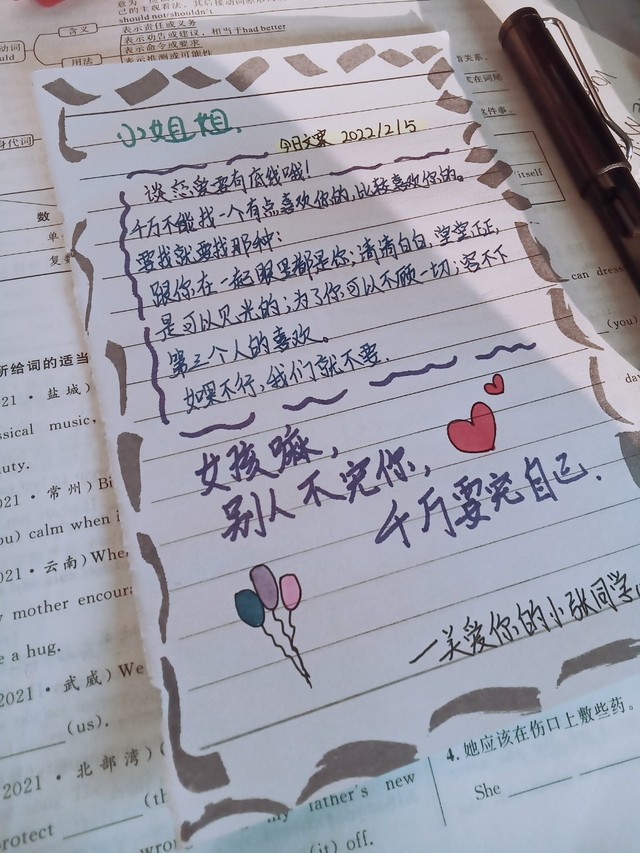 意为
的主观看法，其后接动词原形
should not/shouldn't
动词
uld
含义
表示责任或义务
表示劝告或建议，相当于had better
表示命令或要求
用法
表示推测或可能性
身代词
数
单
复
小姐姐.
今日文案 2022/2/5
谈恋爱要有底线哦!
千万不能找一个有点喜欢你的,比较喜欢你的。
要找就要找那种:
跟你在一起眼里都是你;清清白白,堂堂正正,
是可以见光的;为了你可以不顾一切;容不下
第三个人的喜欢。
如果不行,我们就不要.
女孩嘛,
别人不宠你,
千万要宠自己.
一关爱你的小张同学.
itself
can dress
(you)
day
所给词的适当
021·盐城)
ssical music,
auty.
021·常州) Bi
ou) calm when i
021·云南) Whe
y mother encoura
e a hug.
2021·武威) We
(us).
2021·北部湾) (
protect (th
my father's new
wron (it) off.
4. 她应该在伤口上敷些药。
She